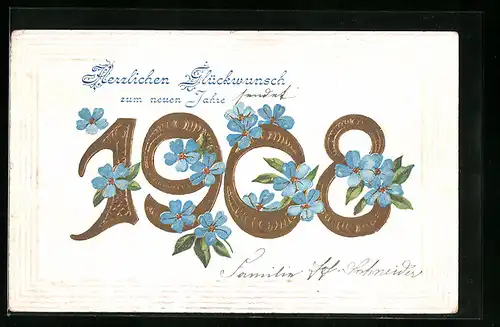 Herzlichen Glückwunsch
zum neuen Jahre sendet
1908
Familie Schneider